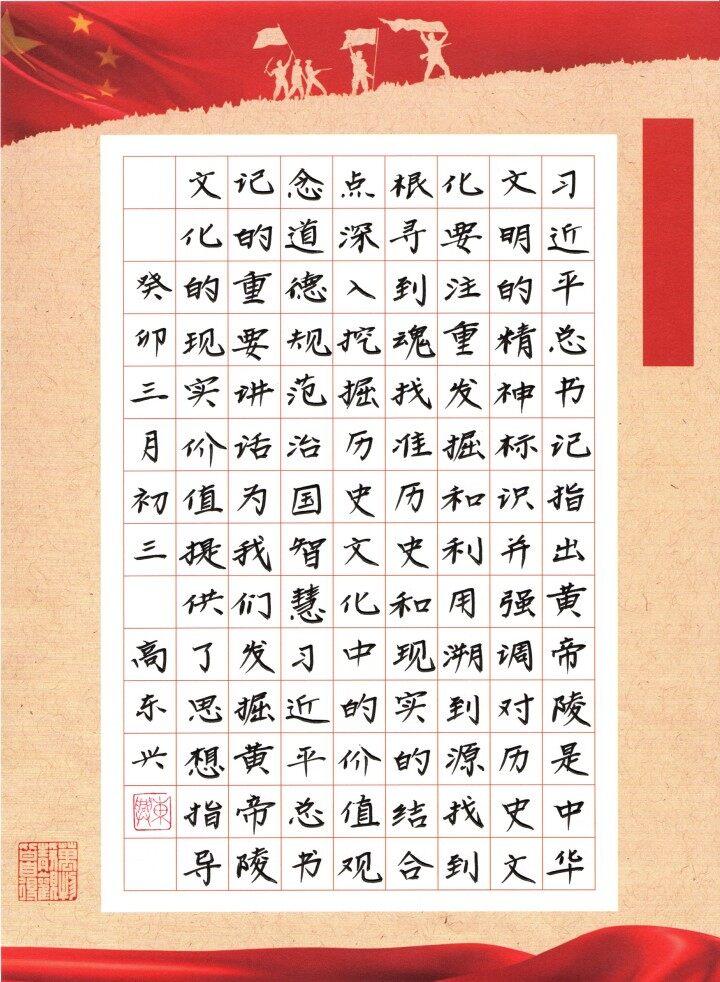 习近平总书记指出黄帝陵是中华
文明的精神标识并强调对历史文
化要注重发掘和利用溯到源找到
根寻到魂找准历史和现实的结合
点深入挖掘历史文化中的价值观
念道德规范治国智慧习近平总书
记的重要讲话为我们发掘黄帝陵
文化的现实价值提供了思想指导
癸卯三月初三 高东兴